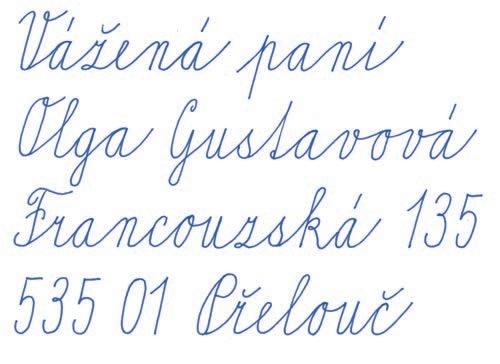 Vážená paní
Olga Gustavová
Francouzská 135
535 01 Přelouč